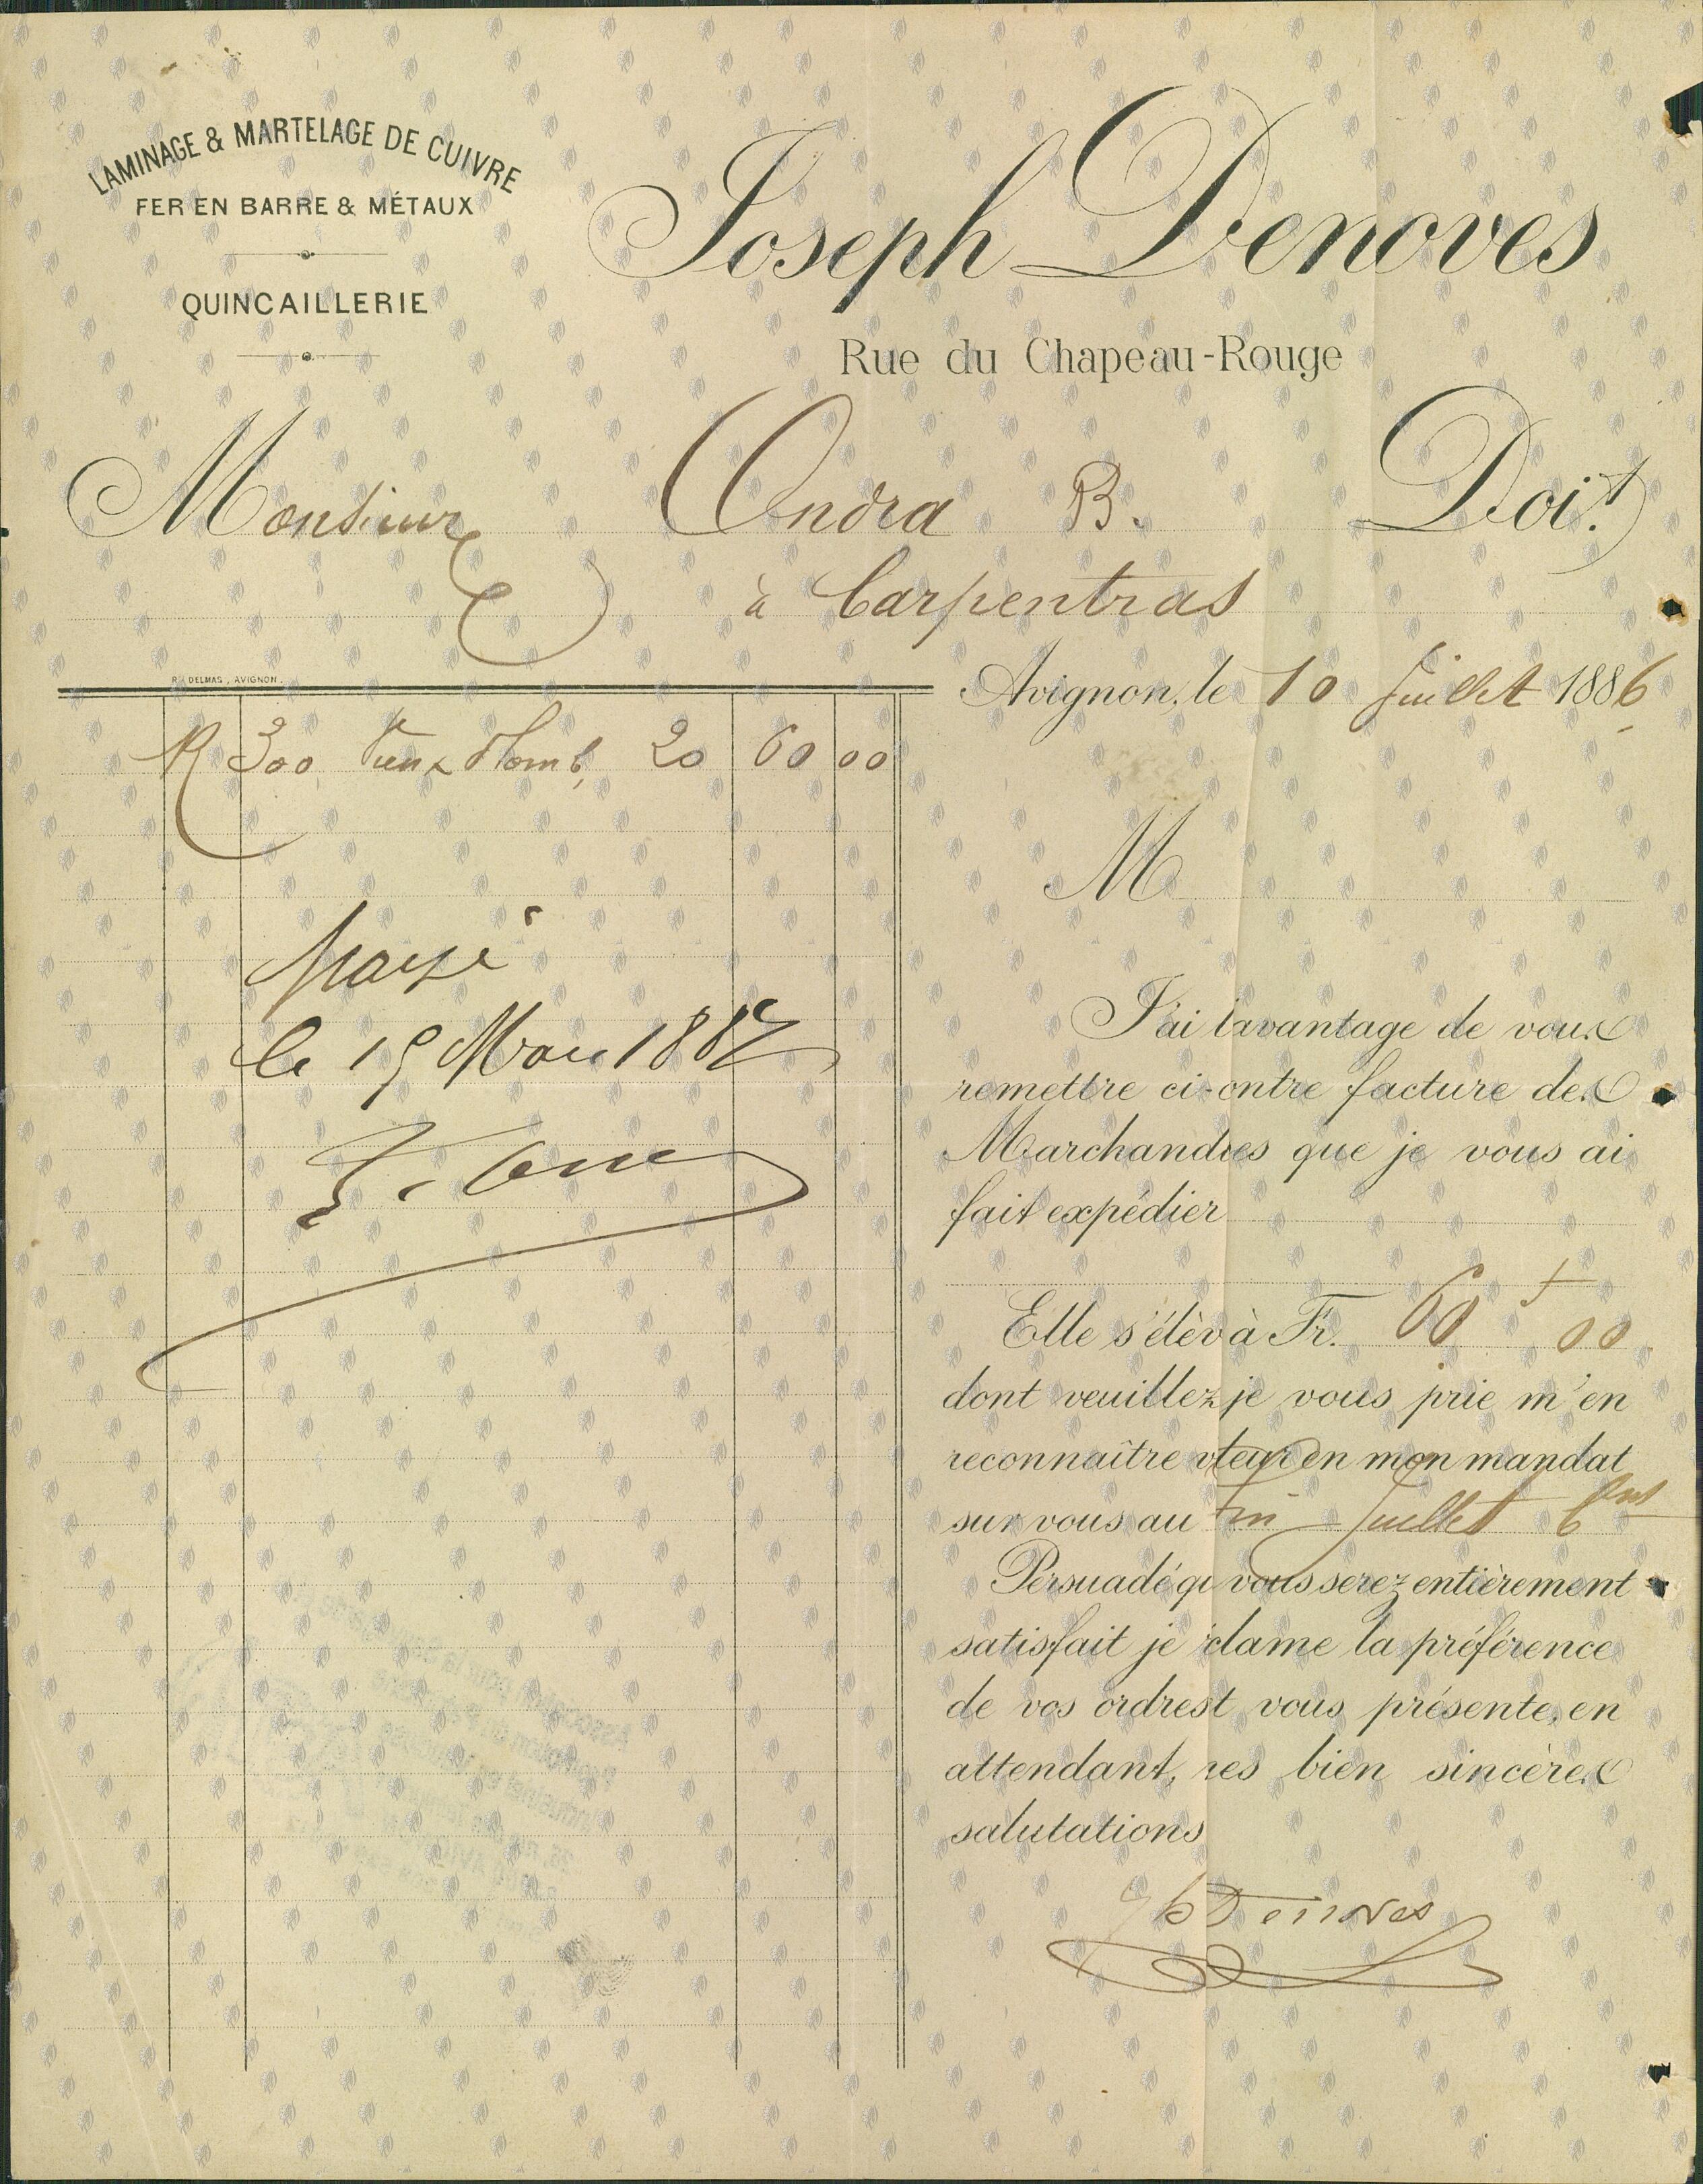 LAMINAGE & MARTELAGE DE CUIVRE
FER EN BARRE & MÉTAUX
QUINCAILLERIE
Joseph Denoves
Rue du Chapeau-Rouge
Monsieur Andra B. Doit
à Carpentras
R. DELMAS, AVIGNON.
Avignon, le 10 Juillet 1886
R 300 Vieux Plomb 20 60 00
M
Payé
le 15 Mars 1887
J'ai l'avantage de vous
remettre ci-contre facture des
Marchandises que je vous ai
fait expédier
Elle s'élève à Fr. 60 f 00
dont veuillez je vous prie m'en
reconnaître valeur en mon mandat
sur vous au fin Juillet
Persuadé que vous serez entièrement
satisfait je réclame la préférence
de vos ordres et vous présente, en
attendant, mes bien sincères
salutations
Jh Denoves